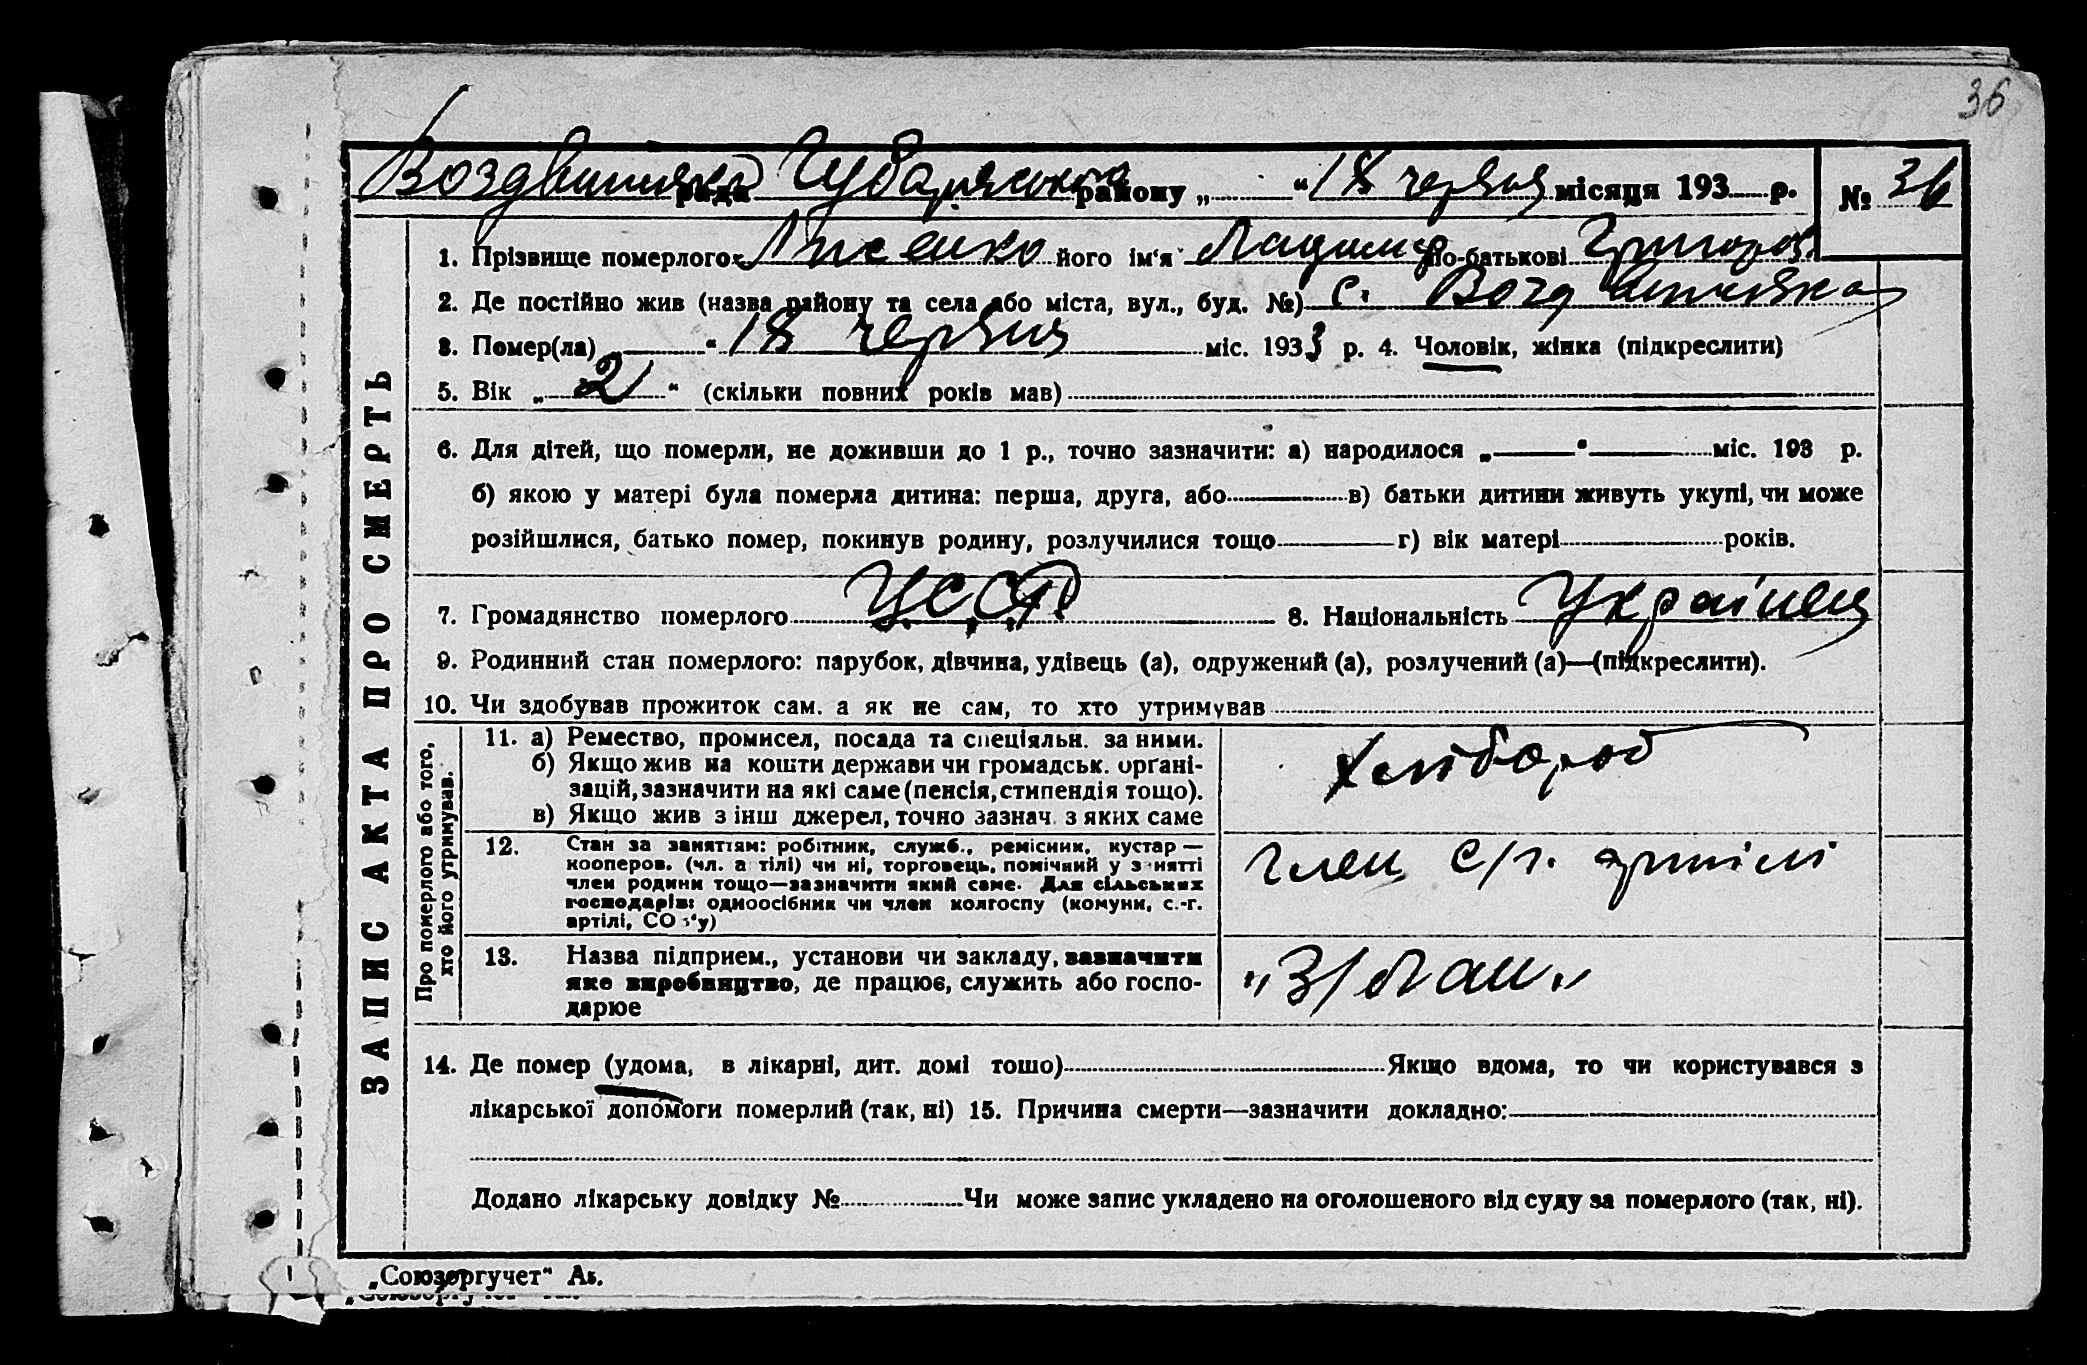 36
Воздвиженська рада Чубарівського району „ “ 18 червня місяця 193 р. № 36
1. Прізвище померлого Лисенко його ім'я Владимир по-батькові Григоров.
2. Де постійно жив (назва району та села або міста, вул., буд. №) с. Воздвиженка
3. Помер(ла) „ “ 18 червня міс. 1933 р. 4. Чоловік, жінка (підкреслити)
5. Вік „ 2 “ (скільки повних років мав)
6. Для дітей, що померли, не доживши до 1 р., точно зазначити: а) народилося „ “ міс. 193 р.
б) якою у матері була померла дитина: перша, друга, або в) батьки дитини живуть укупі, чи може
розійшлися, батько помер, покинув родину, розлучилися тощо г) вік матері років.
7. Громадянство померлого УССР 8. Національність Українец
9. Родинний стан померлого: парубок, дівчина, удівець (а), одружений (а), розлучений (а)—(підкреслити).
10. Чи здобував прожиток сам, а як не сам, то хто утримував
ЗАПИС АКТА ПРО СМЕРТЬ
Про померлого або того,
хто його утримував.
11. а) Ремество, промисел, посада та спеціяльн. за ними.
б) Якщо жив на кошти держави чи громадськ. органі-
зацій, зазначити на які саме (пенсія, стипендія тощо).
в) Якщо жив з інш джерел, точно зазнач. з яких саме
Хлібороб
12. Стан за заняттям: робітник, служб., ремісник, кустар —
кооперов. (чл. а тілі) чи ні, торговець, помічний у з нятті
член родини тощо—зазначити який саме. Для сільських
господарів: одноосібник чи член колгоспу (комуни, с.-г.
артілі, СО з'у)
член с/г. артілі
13. Назва підприєм., установи чи закладу, зазначити
яке виробництво, де працює, служить або госпо-
дарює
14. Де помер (удома, в лікарні, дит. домі тошо) Якщо вдома, то чи користувався з
лікарської допомоги померлий (так, ні) 15. Причина смерти—зазначити докладно:
Додано лікарську довідку № Чи може запис укладено на оголошеного від суду за померлого (так, ні).
„Союзоргучет“ Ав.